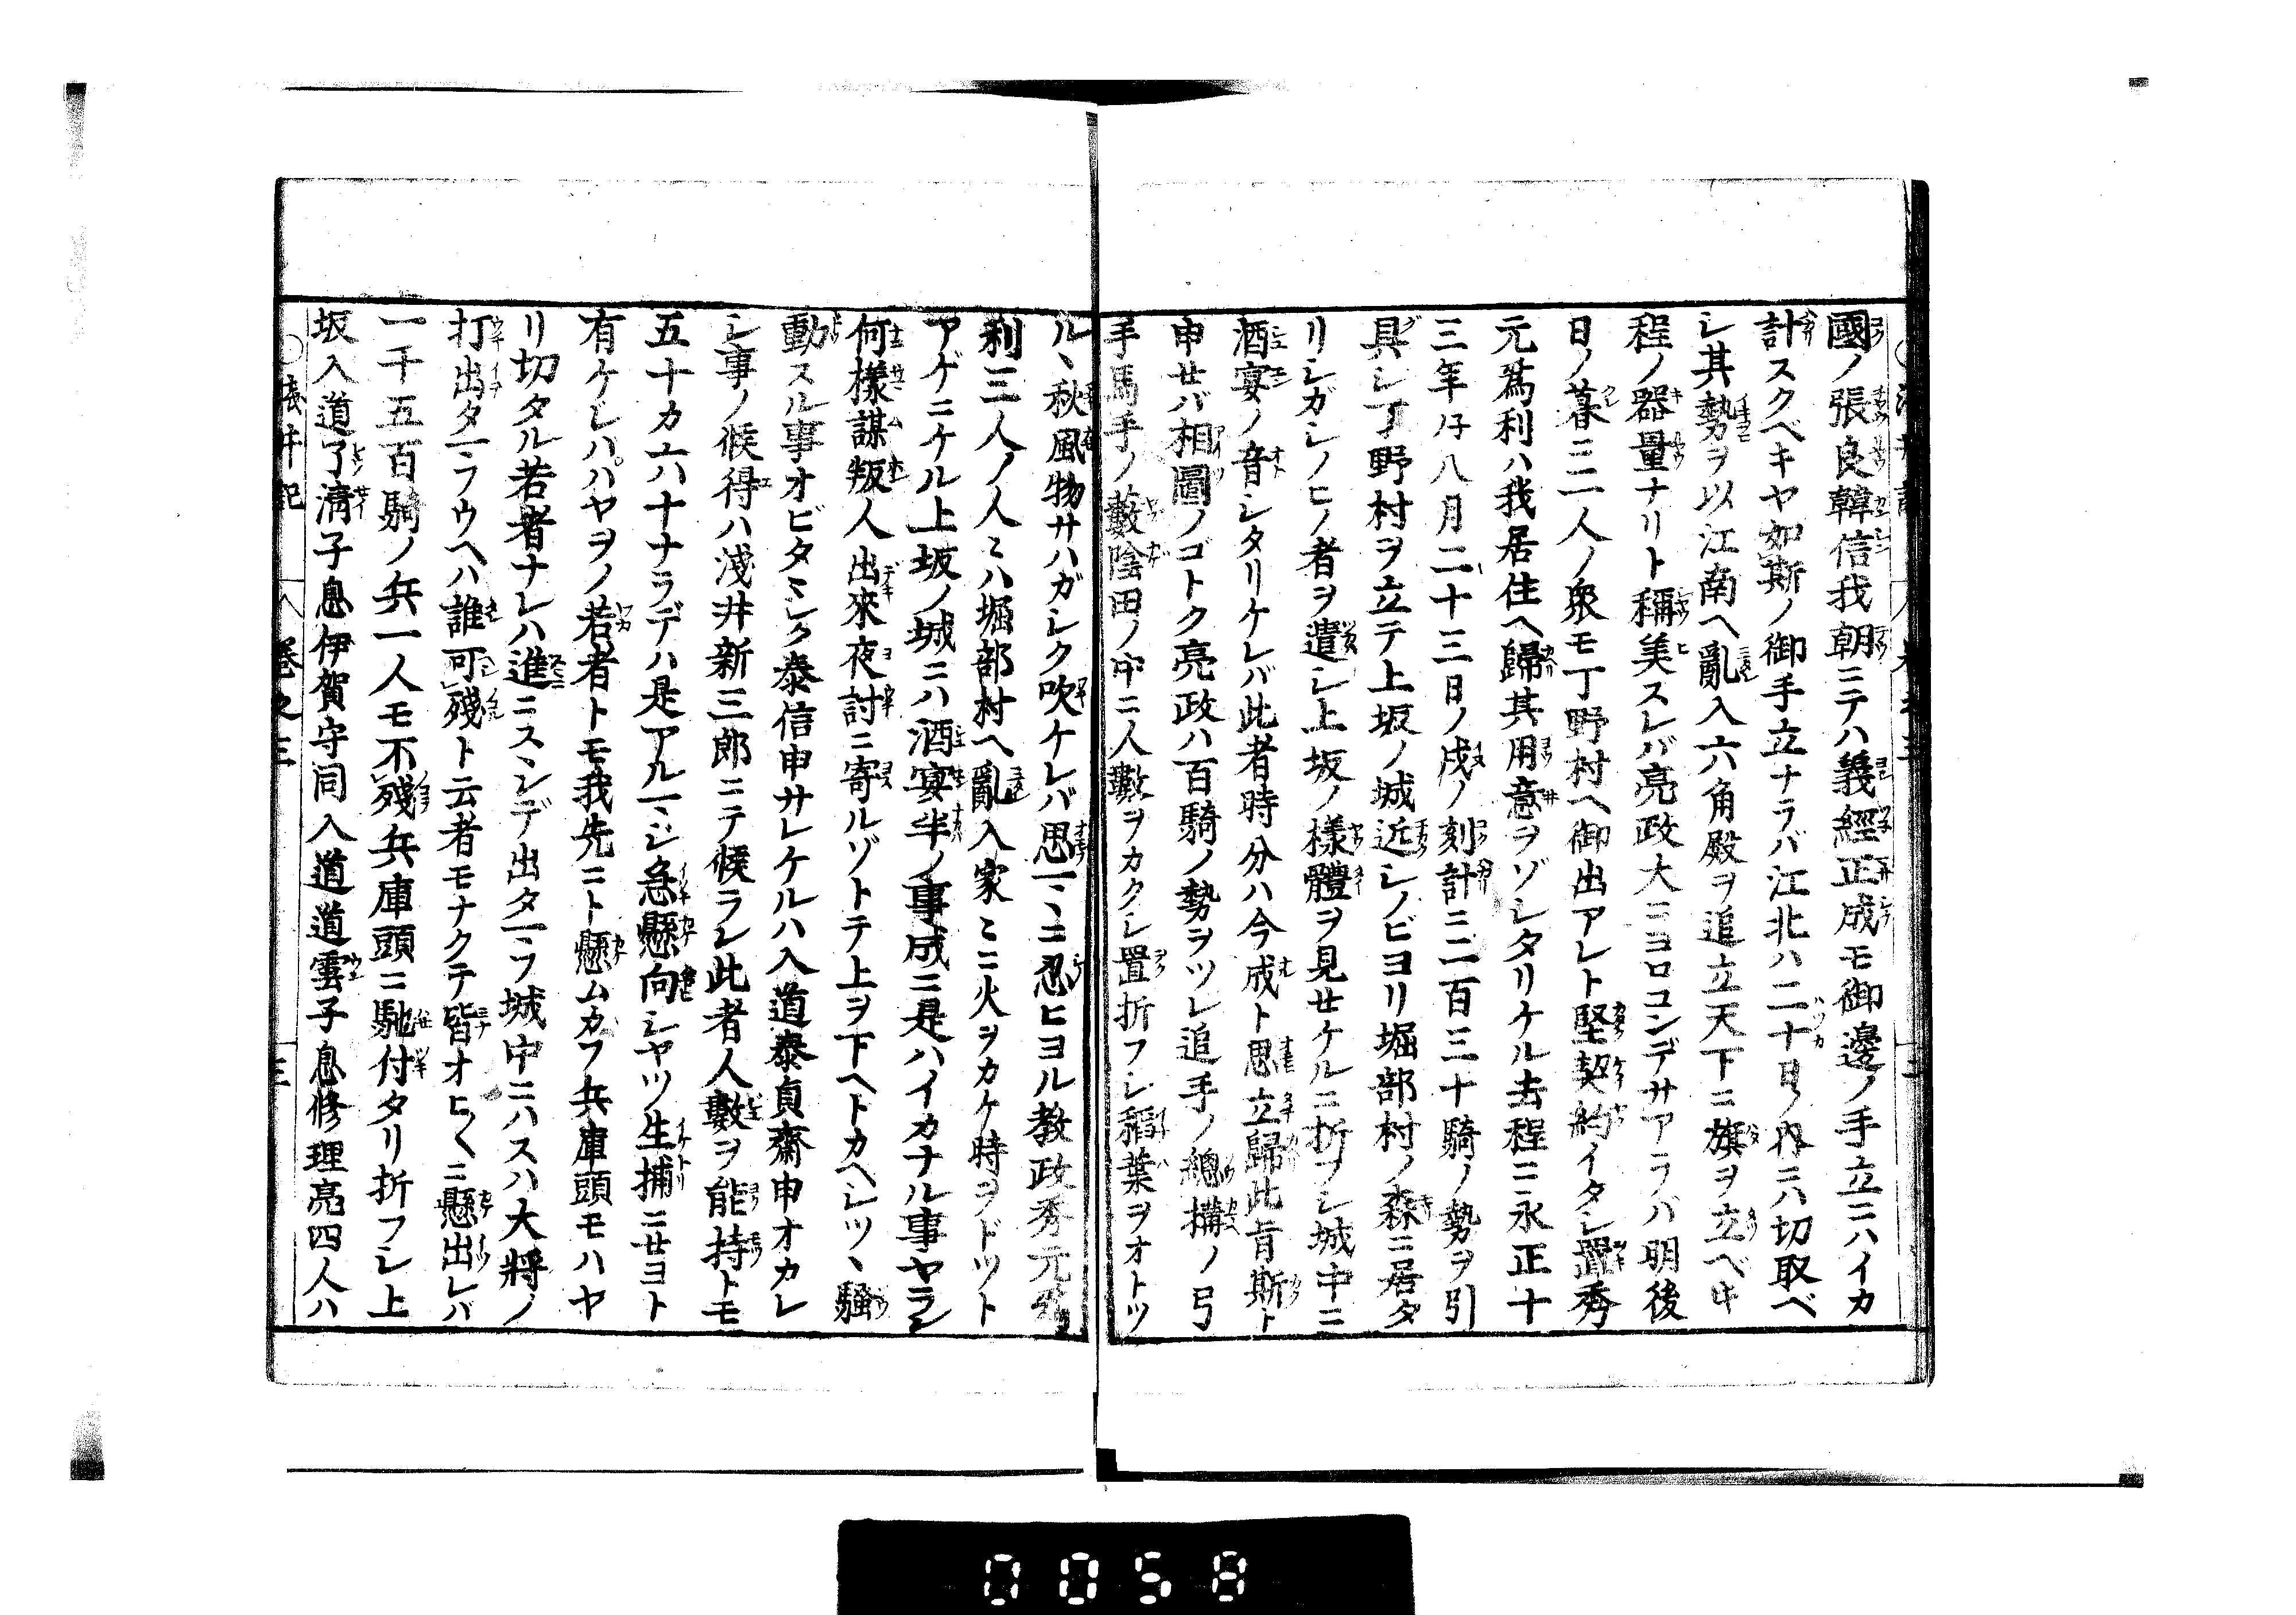 國ノ張良韓信我朝ニテハ義經正成モ御邊ノ手立ニハイカ
計スクベキヤ如斯ノ御手立ナラバ江北ハ二十日ノ内ニハ切取ベ
シ其勢ヲ以江南ヘ亂入六角殿ヲ追立天下ニ旗ヲ立ベキ
程ノ器量ナリト稱美スレバ亮政大ニヨロコンデサアラバ明後
日ノ暮ニ二人ノ衆モ丁野村ヘ御出アレト堅契約イタシ
元爲利ハ我居住ヘ歸其用意ヲゾシタリケル去程ニ永正十
三年丙子八月二十三日ノ戌ノ刻計ニ二百三十騎ノ勢ヲ引
具シ丁野村ヲ立テ上坂ノ城近シノビヨリ堀部村ノ森ニ居タ
リシガシノヒノ者ヲ遣シ上坂ノ樣體ヲ見セケルニ折フシ城中ニ
酒宴ノ音シタリケレバ此者時分ハ今成ト思立歸此旨斯ト
申セバ相圖ノゴトク亮政ハ百騎ノ勢ヲツレ追手ノ總搆ノ弓
手馬手ノ藪陰田ノ中ニ人數ヲカクシ置折フシ稻葉ヲオトツ
ルヽ秋風物サハガシク吹ケレバ思一ヽニ忍ヒヨル教政秀元爲
利三人ノ人ミハ堀部村ヘ亂入家ミニ火ヲカケ時ヲドツト
アゲニケル上坂ノ城ニハ酒宴半ノ事成ニ是ハイカナル事ヤラン
何樣謀叛人出來夜討ニ寄ルゾトテ上ヲ下ヘトカヘシツヽ騷
動スル事オビタヾシク泰信申サレケルハ入道泰貞齋申オカレ
シ事ノ候得ハ淺井新三郎ニテ候ラン此者人數ヲ能持トモ
五十カ六十ナラデハ是アルマジ急懸向シヤツ生捕ニセヨト
有ケレハハヤヲノ若者トモ我先ニト懸ムカフ兵庫頭モハヤ
リ切タル若者ナレハ進ニスヽンデ出タマフ城中ニハスハ大將ノ
打出タマフウヘハ誰可殘ト云者モナクテ皆オヒ〱ニ懸出レバ
一千五百騎ノ兵一人モ不殘兵庫頭ニ馳付タリ折フシ上
坂入道了淸子息伊賀守同入道道雲子息修理亮四人ハ
○淺井記　卷之三　三